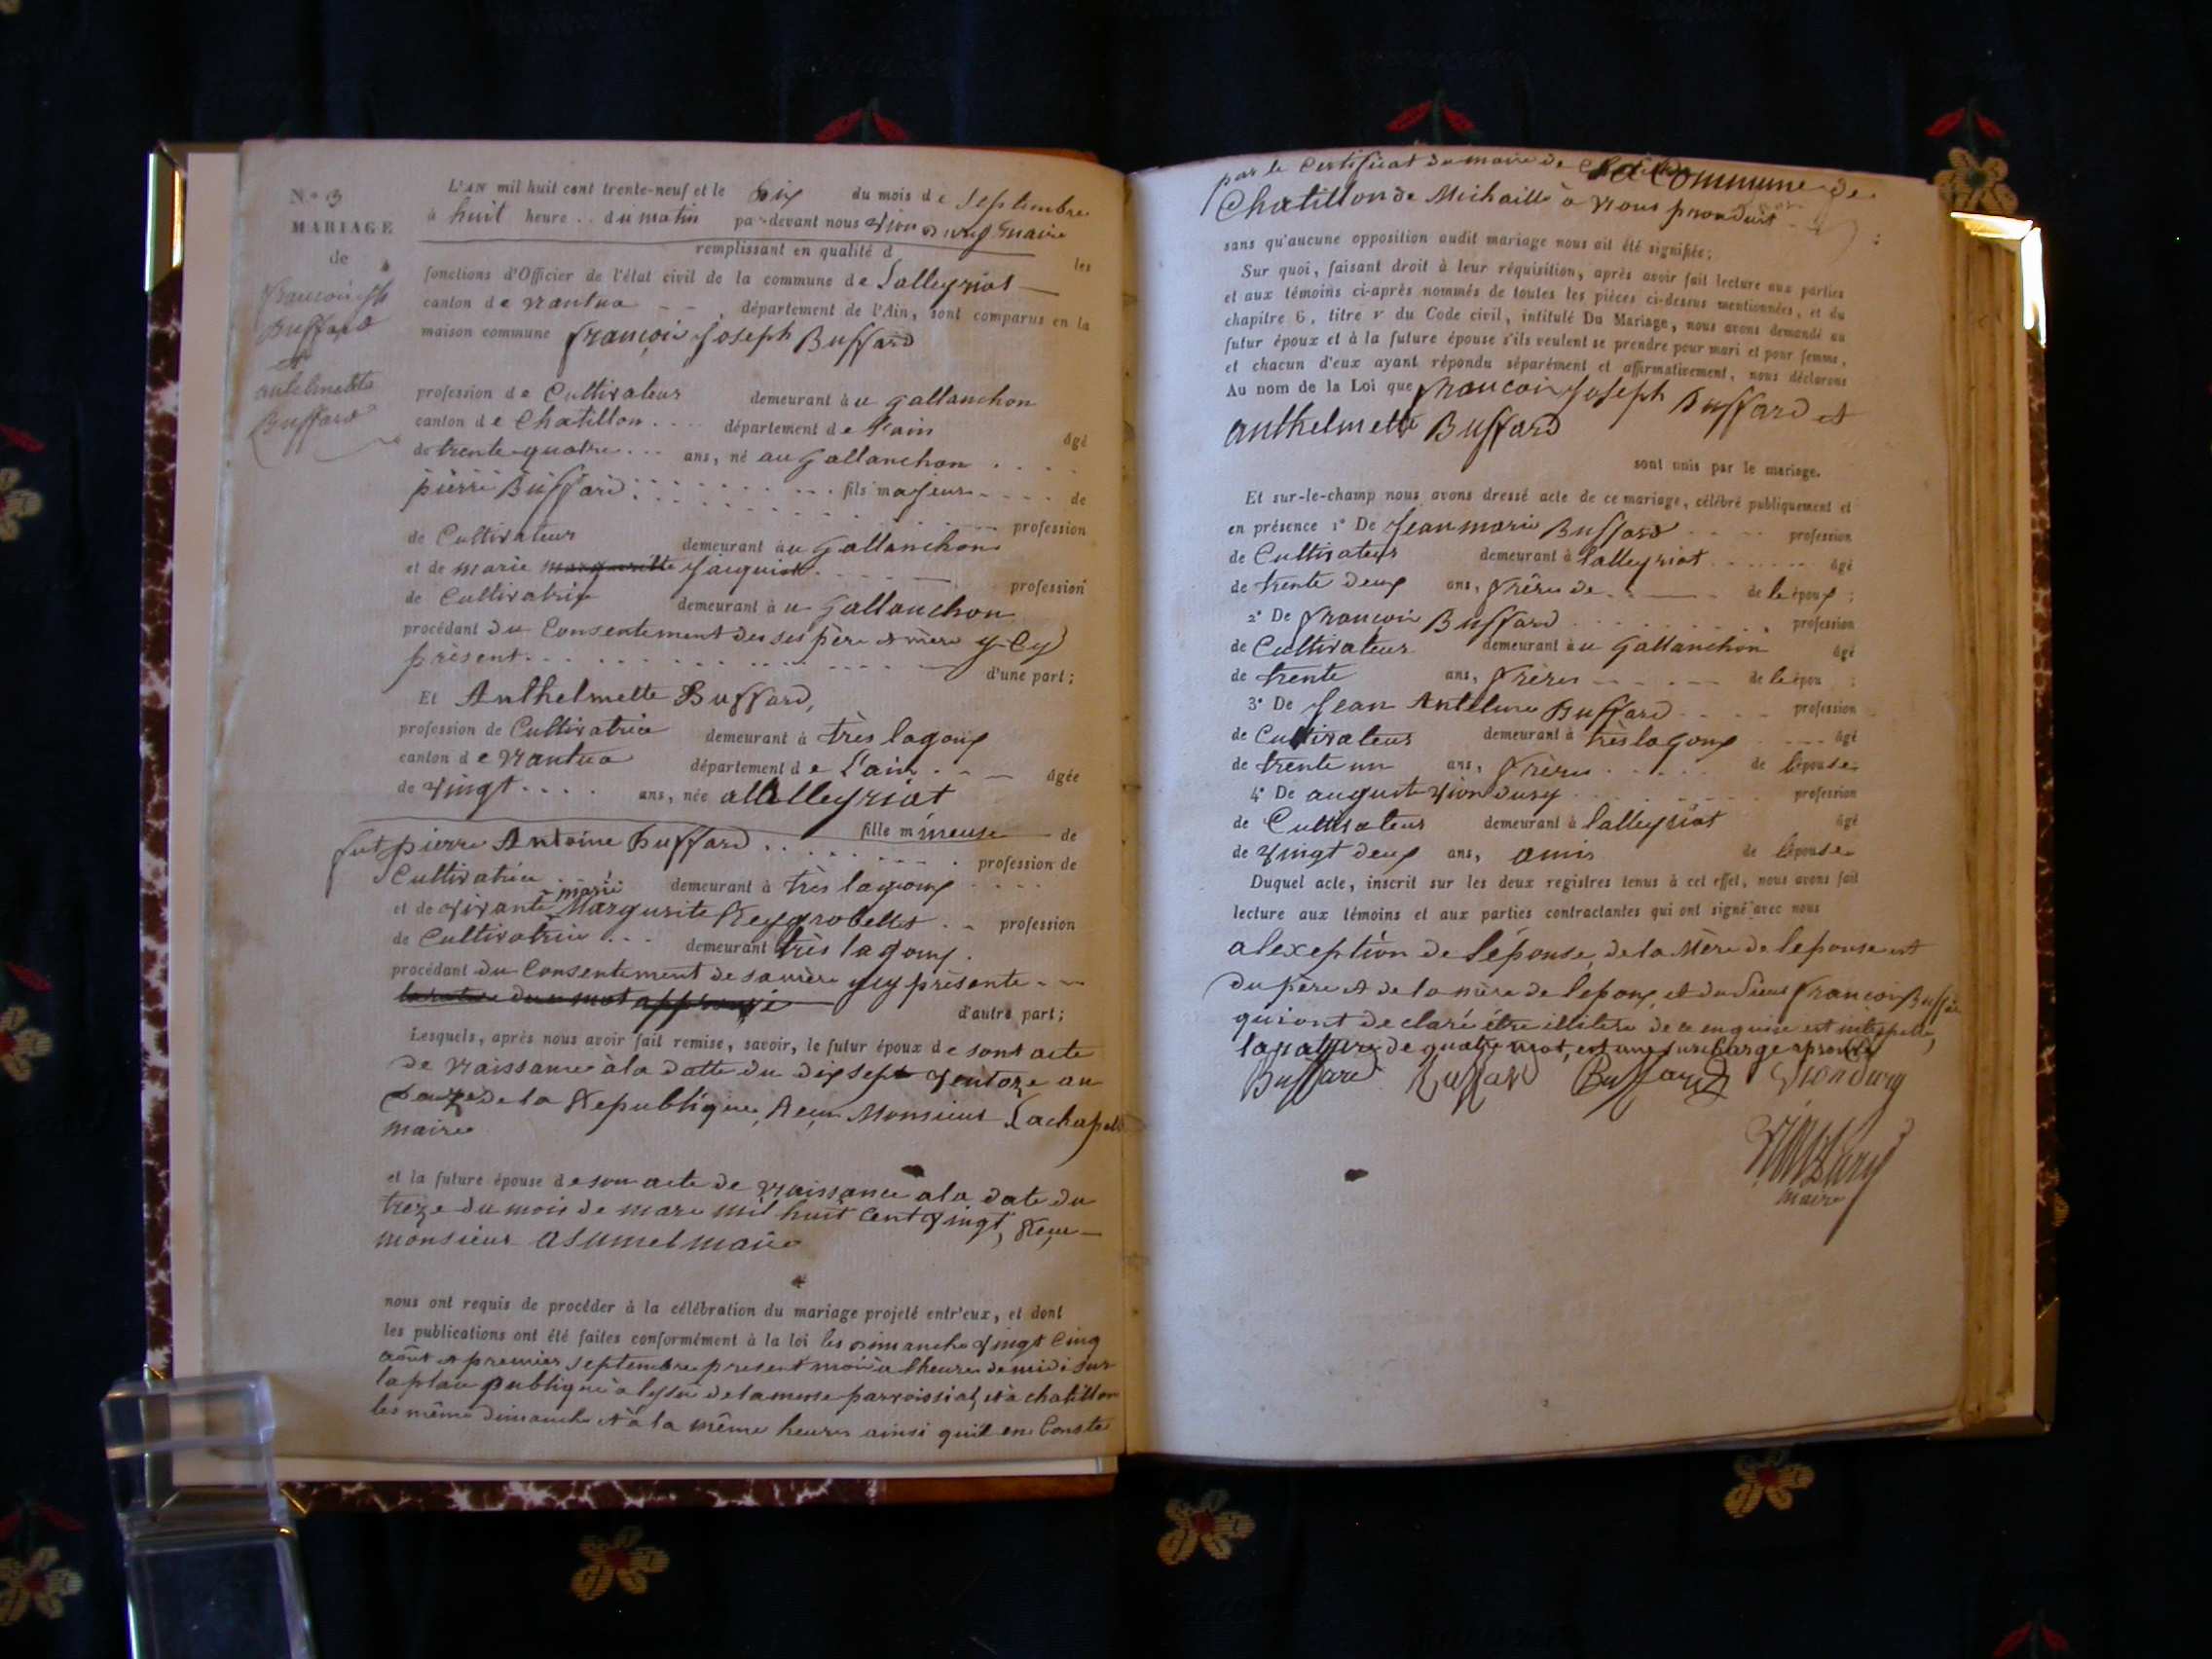 N° 3
MARIAGE
de
françois jph
Buffard
et
anthelmette
Buffard
L'AN mil huit cent trente-neuf et le Dix du mois de Septembre
à huit heure du matin par-devant nous Viondury Maire
remplissant en qualité d les
fonctions d'Officier de l'état civil de la commune de Lalleyriat
canton de Nantua, département de l'Ain, sont comparus en la
maison commune françois Joseph Buffard
profession de Cultivateur demeurant au gallanchon
canton de Chatillon département de l'ain âgé
de trente quatre ans, né au Gallanchon
pierre Buffard fils majeur de
profession
de Cultivateur demeurant au Gallanchon
et de marie marguerite Jacquiot
profession
de Cultivatrice demeurant au Gallanchon
procédant du Consentement des ses père et mère y-Cy
présent d'une part;
Et Anthelmette Buffard,
profession de Cultivatrice demeurant à très lagoux
canton de Nantua département de L'ain âgée
de vingt ans, née alalleyriat
fille mineuse de
fut pierre Antoine buffard profession de
Cultivatrice demeurant à très lagoux
et de vivante marie Margurite profession
de Cultivatrice demeurant très lagoux
procédant du Consentement de sa mère ycy présente
d'autre part;
Lesquels, après nous avoir fait remise, savoir, le futur époux de sont acte
de Naissance à la datte du dix sept Ventoze an
Douze de la Republique, Reçu Monsieur Lachapelle
maire
et la future épouse de son acte de Naissance a la date du
treze du mois de mars mil huit Cent vingt, Reçu
monsieur maire
nous ont requis de procéder à la célébration du mariage projeté entr'eux, et dont
les publications ont été faites conformément à la loi les dimanche vingt Cinq
août et premier septembre present mois à lheure de midi sur
la place publique a lysue de la messe parroissial, et à chatillon
les même dimanche et à la même heure ainsi quil en Conste
par le Certificat du maire de La Commune de
Chatillon de Michaille à Nous pronduit
sans qu'aucune opposition audit mariage nous ait été signifiée;
Sur quoi, faisant droit à leur réquisition, après avoir fait lecture aux parties
et aux témoins ci-après nommés de toutes les pièces ci-dessus mentionnées, et du
chapitre 6, titre v du Code civil, intitulé Du Mariage, nous avons demandé au
futur époux et à la future épouse s'ils veulent se prendre pour mari et pour femme,
et chacun d'eux ayant répondu séparément et affirmativement, nous déclarons
Au nom de la Loi que françois Joseph Buffard et
anthelmette Buffard
sont unis par le mariage.
Et sur-le-champ nous avons dressé acte de ce mariage, célébré publiquement et
en présence 1° De Jean marie Buffard profession
de Cultivateur demeurant à lalleyriat âgé
de trente deux ans, frère de de le époux;
2° De françois Buffard profession
de Cultivateur demeurant au gallanchon âgé
de trente ans, frère de le épou;
3° De Jean Antelme Buffard profession
de Cultivateur demeurant à très lagoux âgé
de trente un ans, frère de lépouse
4° De auguste viondury profession
de Cultivateur demeurant à lalleyriat âgé
de vingt deux ans, amis de lépouse
Duquel acte, inscrit sur les deux registres tenus à cet effet, nous avons fait
lecture aux témoins et aux parties contractantes qui ont signé avec nous
alexeption de l'épouse, de la Mère de lepouse et
du père et de la mère de lepoux, et du Sieur françois Buffard
qui ont declaré être illitere de ce enquise et interpellé,
la rature de quatre mot, est une surcharge aprouvé
Buffard Buffard Buffard Viondury
Viondury
maire